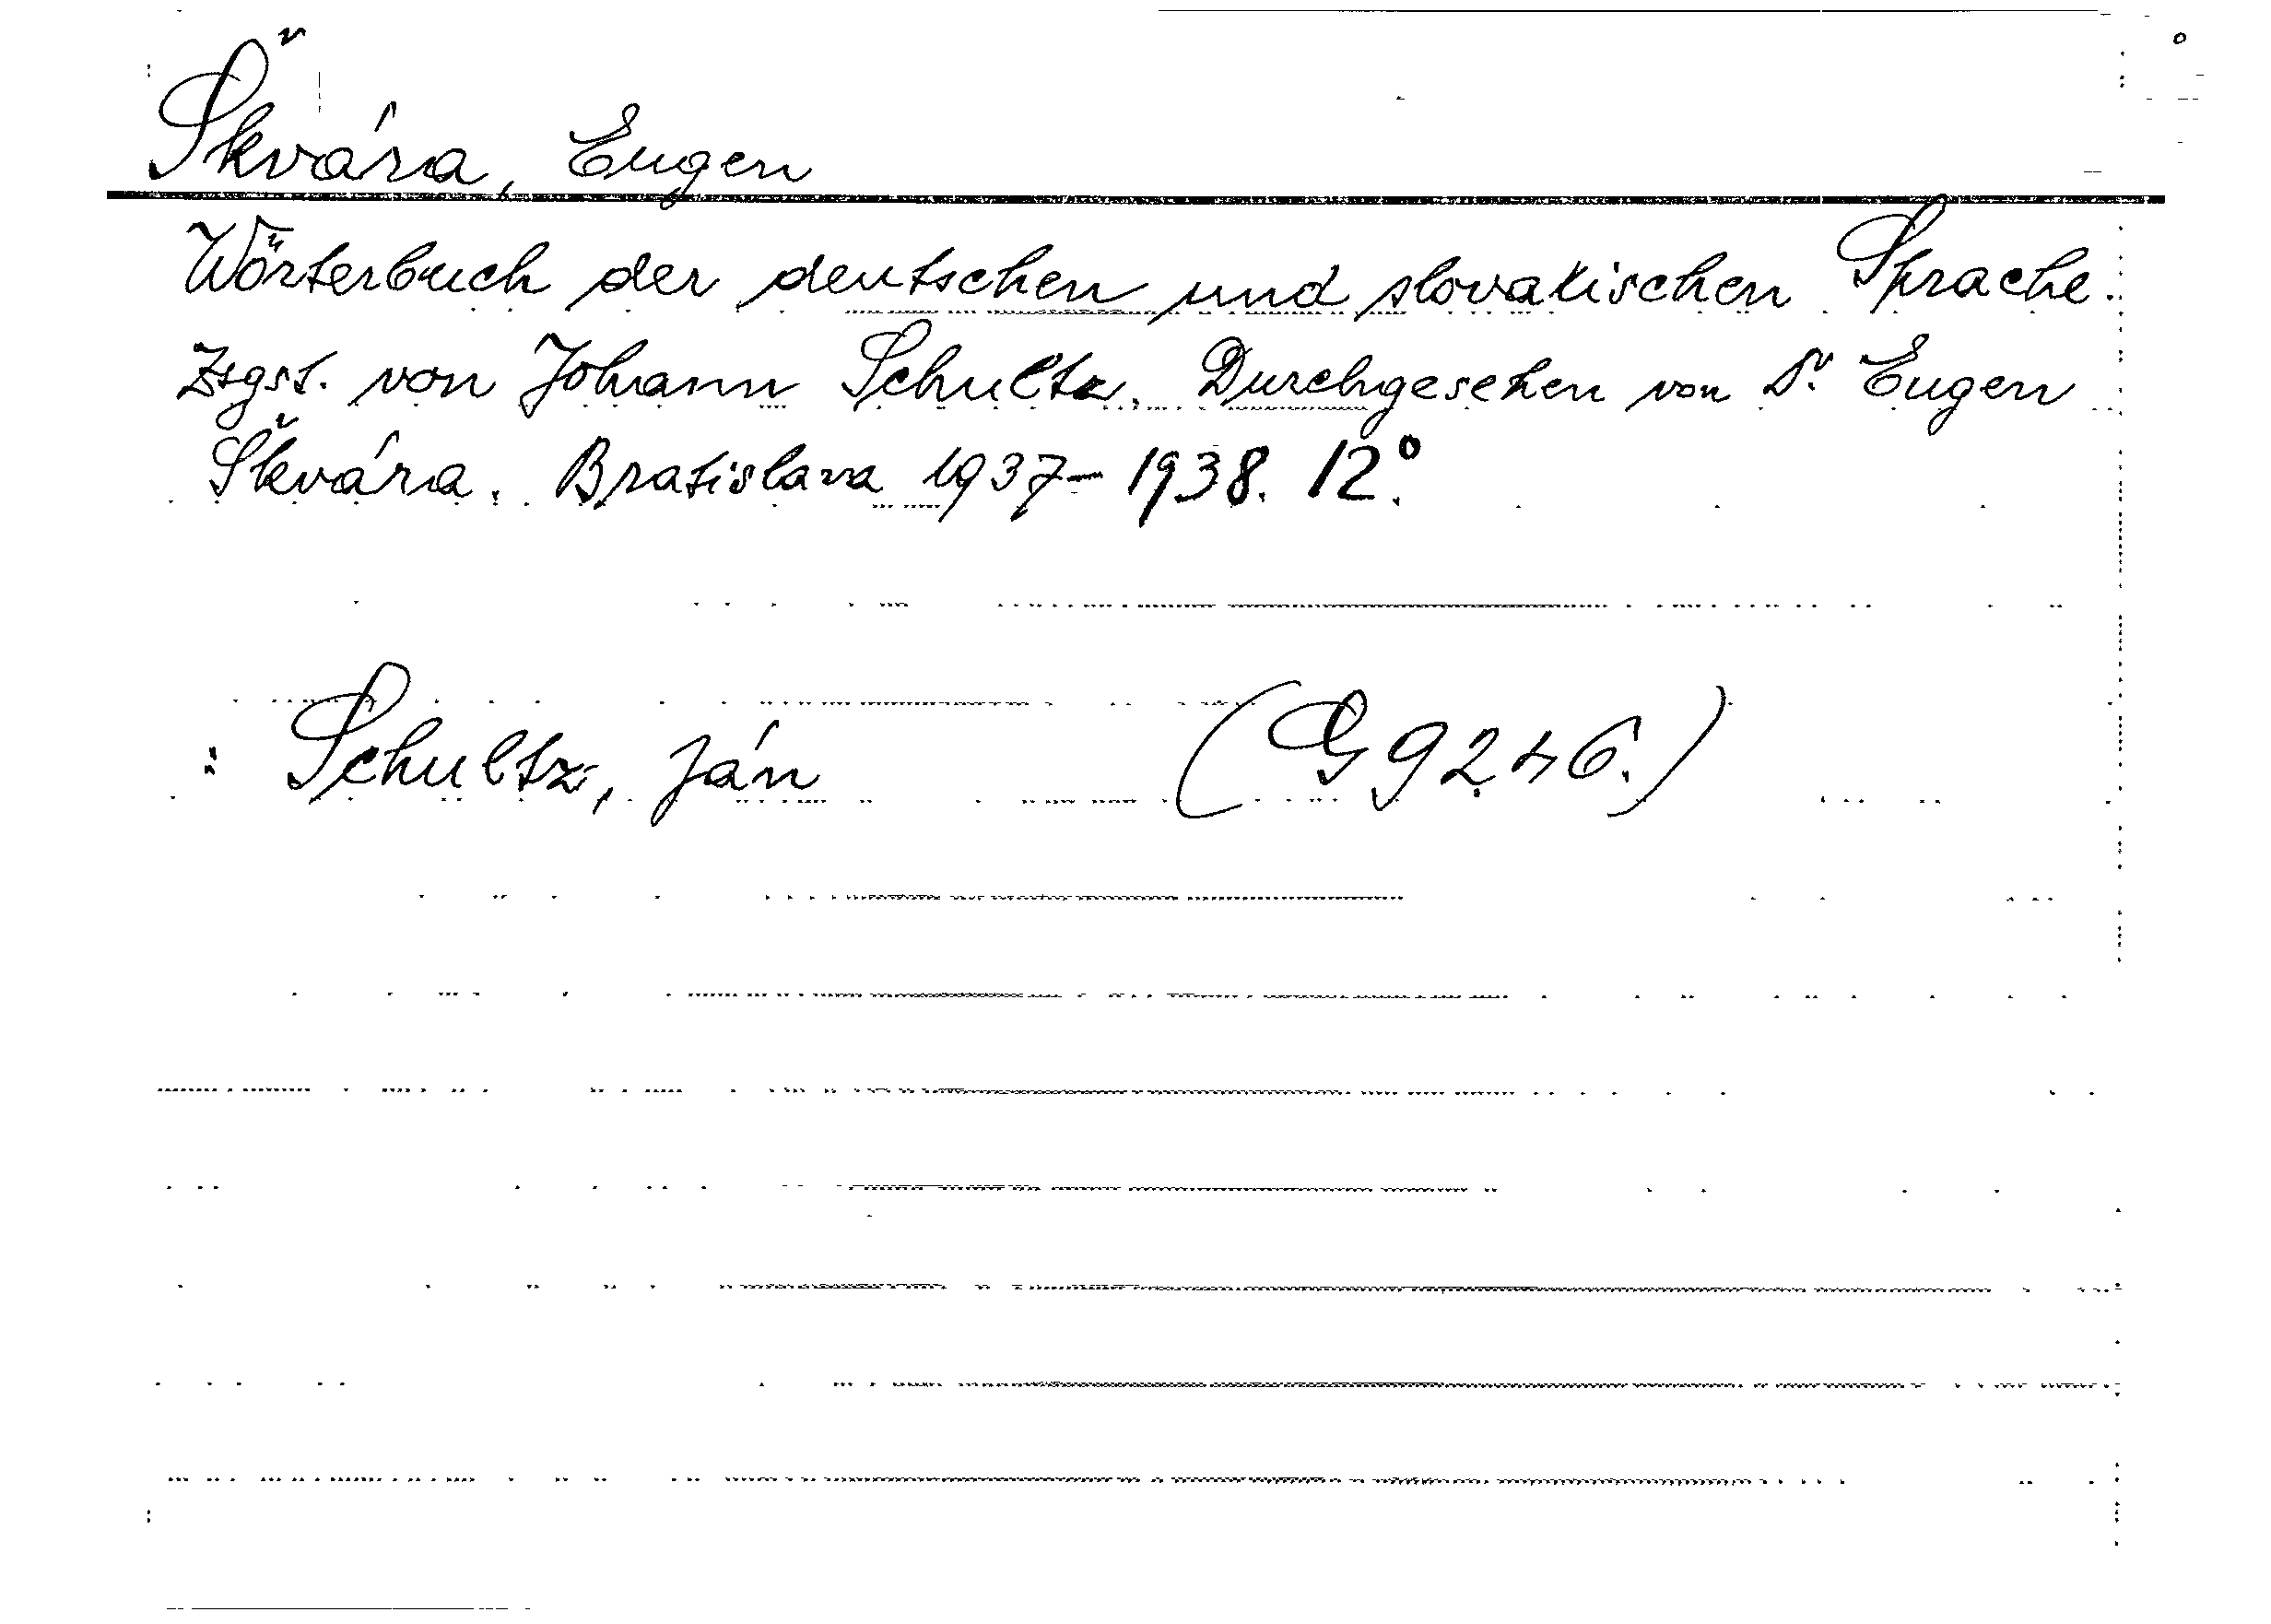 Škvára, Eugen
Wörterbuch der deutschen und slovakischen Sprache.
Zsgst. von Johann Schultz. Durchgesehen von Dr. Eugen
Škvára. Bratislava 1937-1938. 12°.
: Schultz, Ján (G 9246.)